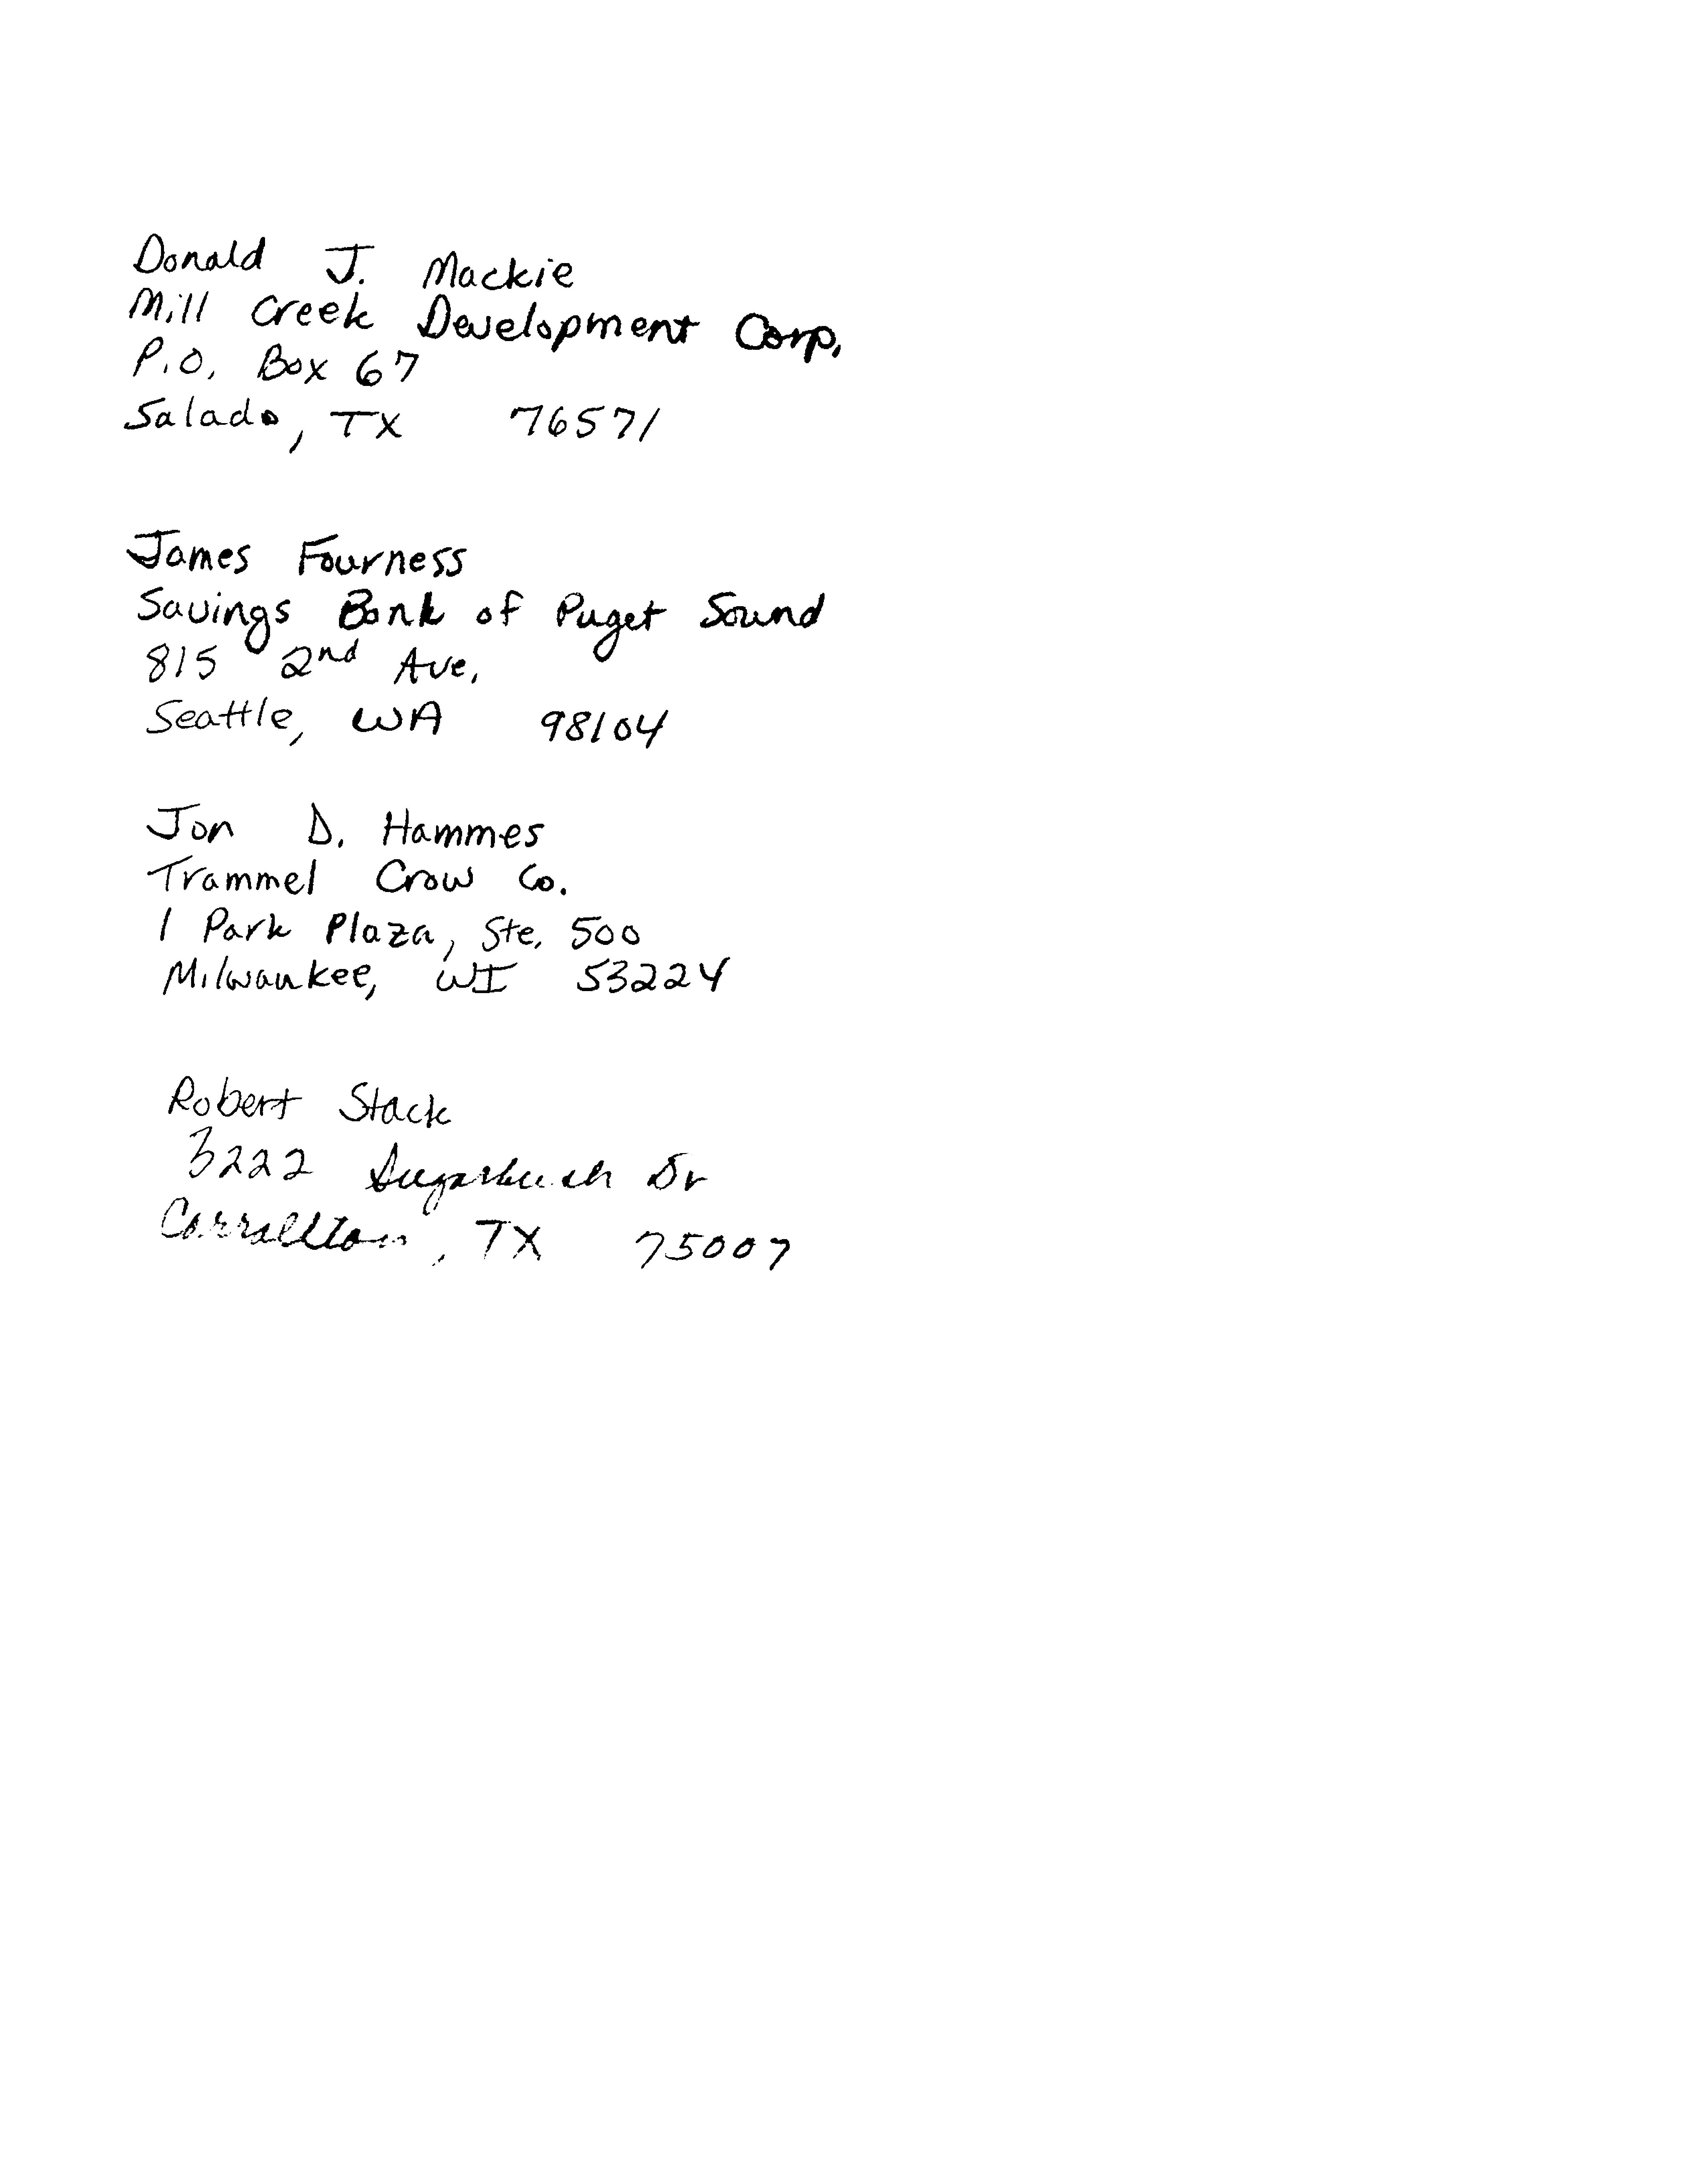 Donald J. Mackie
Mill Creek Development Corp.
P.O. Box 67
Salado, TX 76571
James Fourness
Savings Bank of Puget Sound
815 2nd Ave.
Seattle, WA 98104
Jon D. Hammes
Trammel Crow Co.
1 Park Plaza, Ste. 500
Milwaukee, WI 53224
Robert Stack
3222 Sugarbush Dr
Carrollton, TX 75007